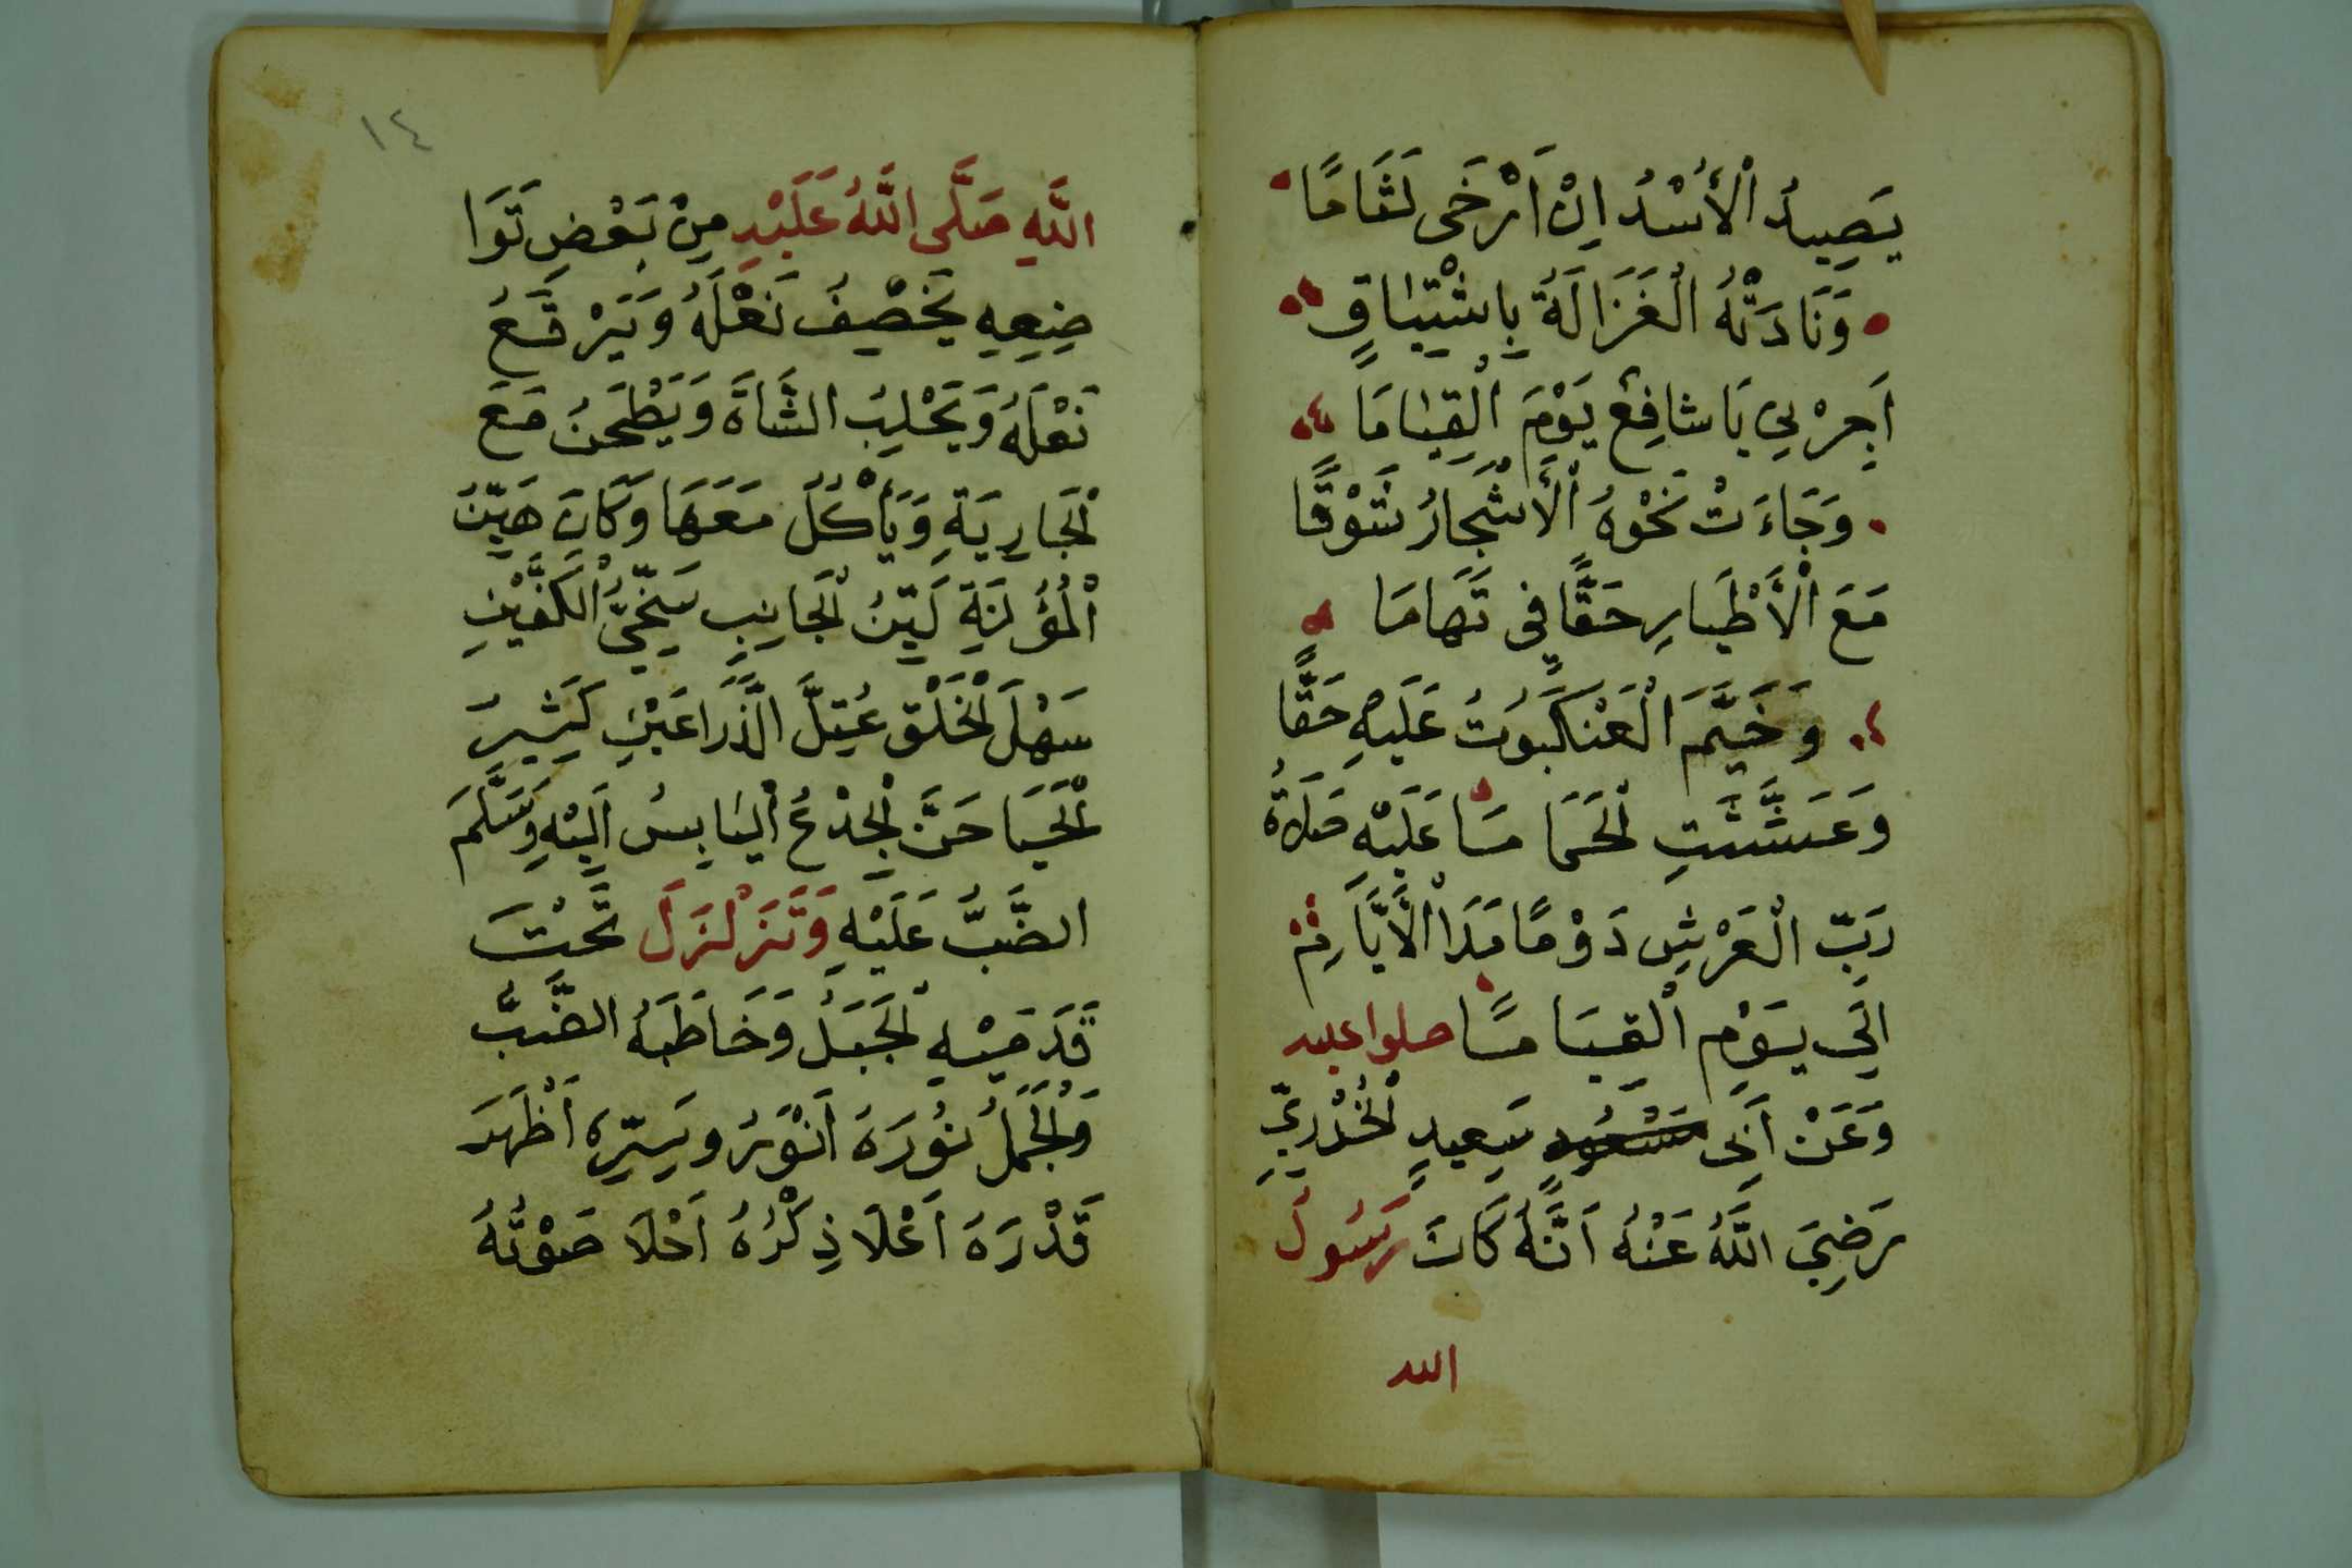 يَصِيدُ الْأُسْدُ اِنْ اَرْخَى لَثَامًا
وَنَادَتْهُ الْغَزَالَةُ بِاشْتِيَاقٍ
اَجِرْنِي يَا شَافِعْ يَوْمَ الْقِيَامَا
وَجَاءَتْ نَحْوَهُ الْأَشْجَارُ شَوْقًا
مَعَ الْأَطْيَارِ حَقًّا فِى تَهَامَا
وَخَيَّمَ الْعَنْكَبُوتُ عَلَيْهِ حَقًّا
وَعَشَّشَتِ الْحَمَامَا عَلَيْهِ صَلَاةُ
رَبِّ الْعَرْشِ دَوْمًا مَدَا الْأَيَّامِ
اِلَى يَوْمِ الْقِيَامَا صلوا عليه
وَعَنْ اَبِى سَعِيدٍ الْخُدْرِيِّ
رَضِيَ اللَّهُ عَنْهُ اَنَّهُ كَانَ رَسُولُ
الله
١٤
اللَّهِ صَلَّى اللَّهُ عَلَيْهِ مِنْ بَعْضِ تَوَا
ضِعِهِ يَخْصِفُ نَعْلَهُ وَيَرْقَعُ
نَعْلَهُ وَيَحْلِبُ الشَّاةَ وَيَطْحَنُ مَعَ
الْجَارِيَةِ وَيَأْكُلُ مَعَهَا وَكَانَ هَيِّنُ
الْمُؤْنَةِ لَيِّنُ الْجَانِبِ سَخِيُّ الْكَفَّيْنِ
سَهْلَ الْخَلْقِ عُتِلَّ الذَّرَاعَيْنِ كَثِيرَ
الْحَيَا حَنَّ الْجِذْعُ الْيَابِسُ اِلَيْهِ وَسَلَّمَ
الضَّبُّ عَلَيْهِ وَتَزَلْزَلَ تَحْتَ
قَدَمَيْهِ الْجَبَلُ وَخَاطَبَهُ الضَّبُّ
وَالْجَمَلُ نُورَهُ اَنْوَرُ وَسِرِّهُ اَظْهَرَ
قَدْرَهُ اَعْلَا ذِكْرُهُ اَحْلَا صَوْتُهُ